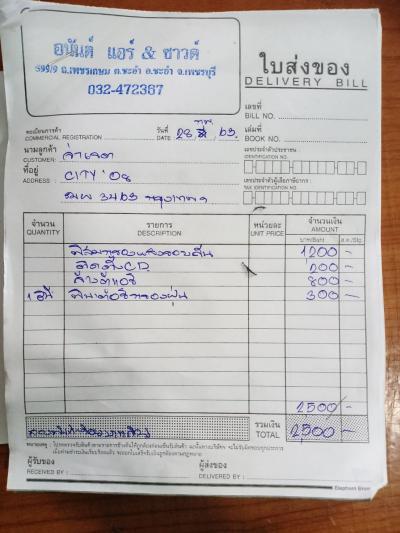 อนันต์ แอร์ & ซาวด์
599/9 ถ.เพชรเกษม ต.ชะอำ อ.ชะอำ จ.เพชรบุรี
032-472387
ใบส่งของ
DELIVERY BILL
เลขที่
BILL NO.
ทะเบียนการค้า
COMMERCIAL REGISTRATION
วันที่
DATE 28 63
เล่มที่
BOOK NO.
นามลูกค้า
CUSTOMER:
เลขประจำตัวประชาชน
IDENTIFICATION NO.
ที่อยู่
ADDRESS : CITY '08
เลขประจำตัวผู้เสียภาษีอากร
TAX IDENTIFICATION NO.
3463 กรุงเทพฯ
จำนวน รายการ หน่วยละ จำนวนเงิน
QUANTITY DESCRIPTION UNIT PRICE AMOUNT
บาท(Baht) ส.ต./Stg.
ฟิล์มกรองแสงรอบคัน 1200 -
ติดตั้งCD 200 -
ล้างตู้แอร์ 800 -
1 300 -
2500 -
รวมเงิน
TOTAL 2500 -
ผู้รับของ
RECEIVED BY :
ผู้ส่งของ
DELIVERED BY :
Elephant Brand